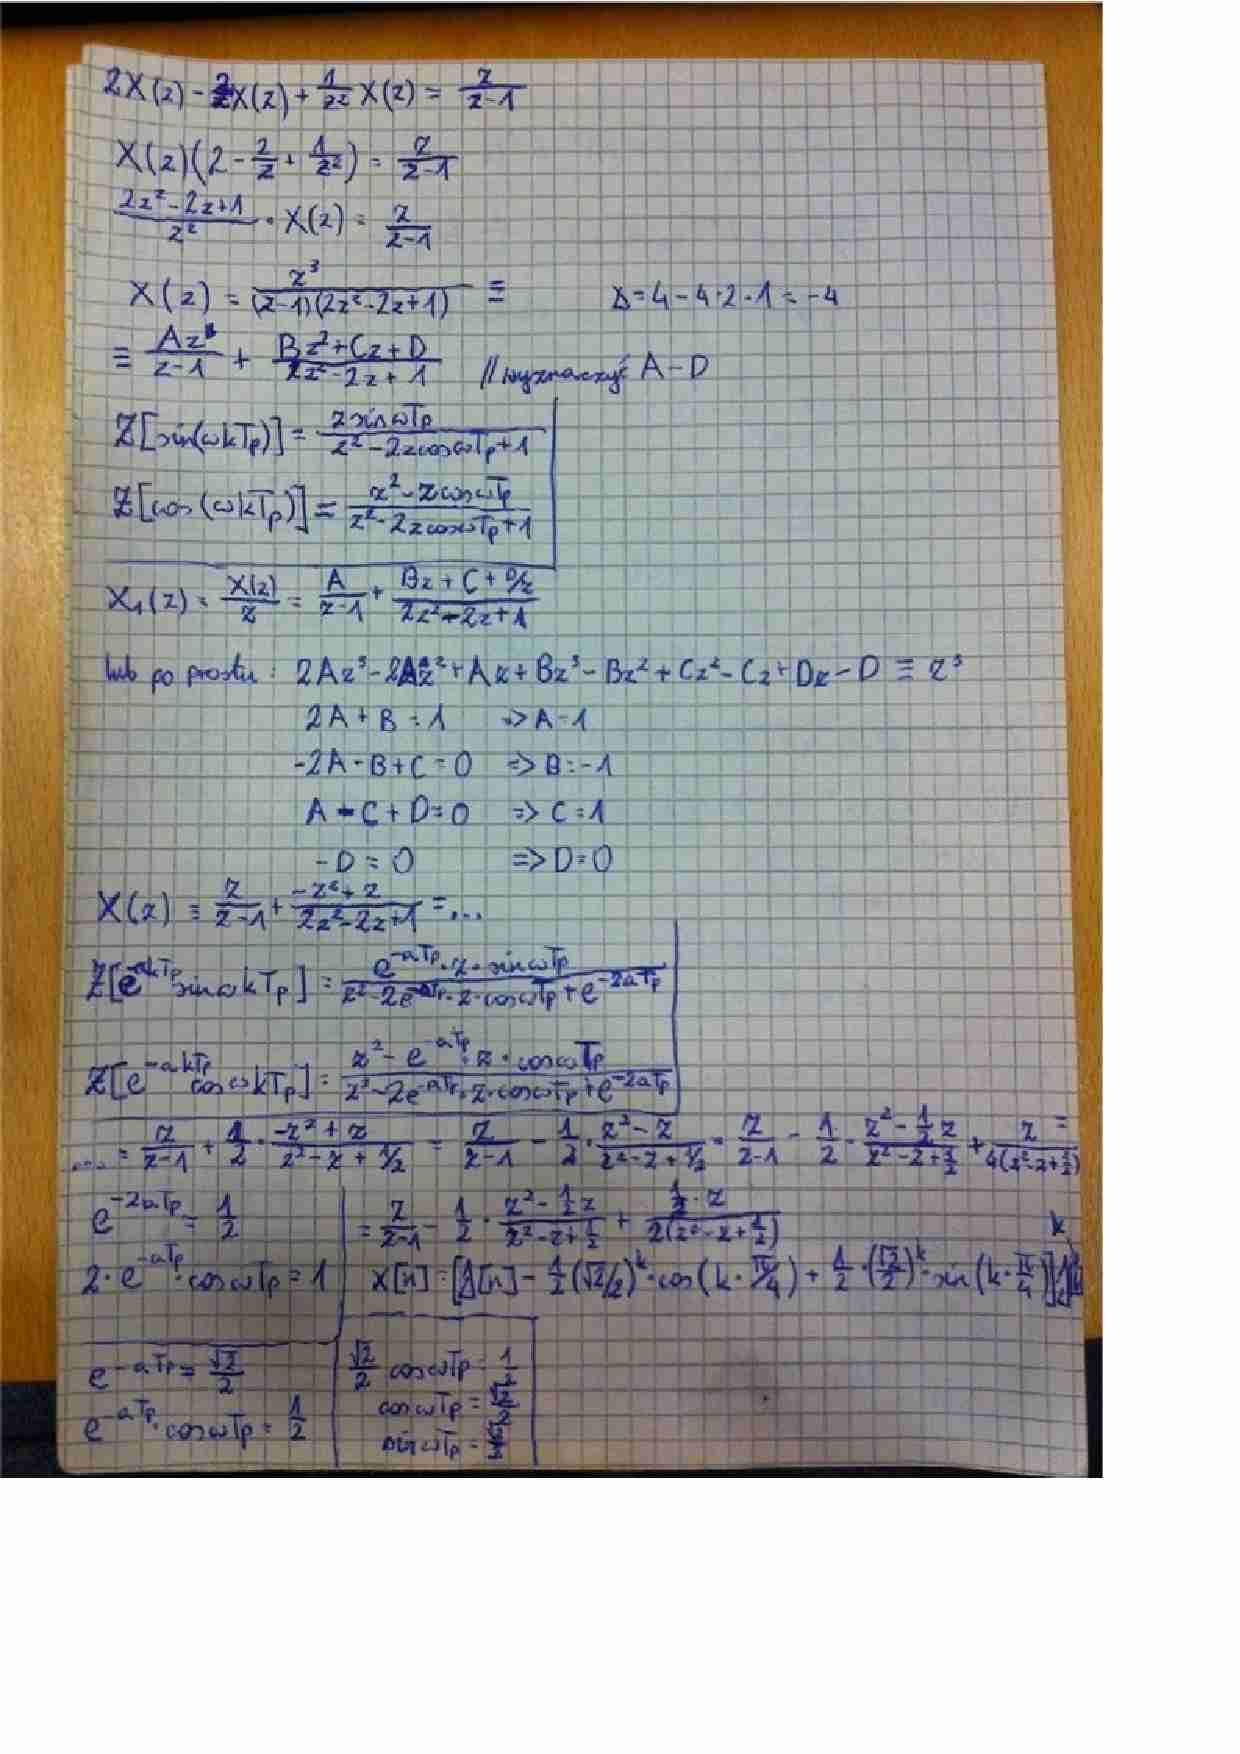 2X(z) - 2/z X(z) + 1/z² X(z) = z/(z-1)
X(z)(2 - 2/z + 1/z²) = z/(z-1)
(2z²-2z+1)/z² · X(z) = z/(z-1)
X(z) = z³/((z-1)(2z²-2z+1)) ≡ Δ=4-4·2·1=-4
≡ Az/(z-1) + (Bz²+Cz+D)/(2z²-2z+1) //wyznaczyć A-D
Z[sin(ωkTp)] = (z sinωTp)/(z²-2z cosωTp+1)
Z[cos(ωkTp)] = (z²-z cosωTp)/(z²-2z cosωTp+1)
X₁(z) = X(z)/z = A/(z-1) + (Bz+C+D/z)/(2z²-2z+1)
lub po prostu: 2Az³-2Az²+Az+Bz³-Bz²+Cz²-Cz+Dz-D ≡ z³
2A+B=1 => A=1
-2A-B+C=0 => B=-1
A-C+D=0 => C=1
-D=0 => D=0
X(z) ≡ z/(z-1) + (-z²+z)/(2z²-2z+1) = ...
Z[e^(-akTp) sinωkTp] = (e^(-aTp)·z·sinωTp)/(z²-2e^(-aTp)·z·cosωTp+e^(-2aTp))
Z[e^(-akTp) cosωkTp] = (z²-e^(-aTp)·z·cosωTp)/(z²-2e^(-aTp)·z·cosωTp+e^(-2aTp))
... = z/(z-1) + 1/2·(-z²+z)/(z²-z+1/2) = z/(z-1) - 1/2·(z²-z)/(z²-z+1/2) = z/(z-1) - 1/2·(z²-1/2z)/(z²-z+1/2) + z/(4(z²-z+1/2)) =
e^(-2aTp) = 1/2
= z/(z-1) - 1/2·(z²-1/2z)/(z²-z+1/2) + (1/2·z)/(2(z²-z+1/2))
2·e^(-aTp)·cosωTp=1
x[n]=[1[n] - 1/2(√2/2)^k·cos(k·π/4) + 1/2·(√2/2)^k·sin(k·π/4)]
e^(-aTp) = √2/2
e^(-aTp)·cosωTp = 1/2
√2/2 cosωTp = 1/2
cosωTp = √2/2
sinωTp =